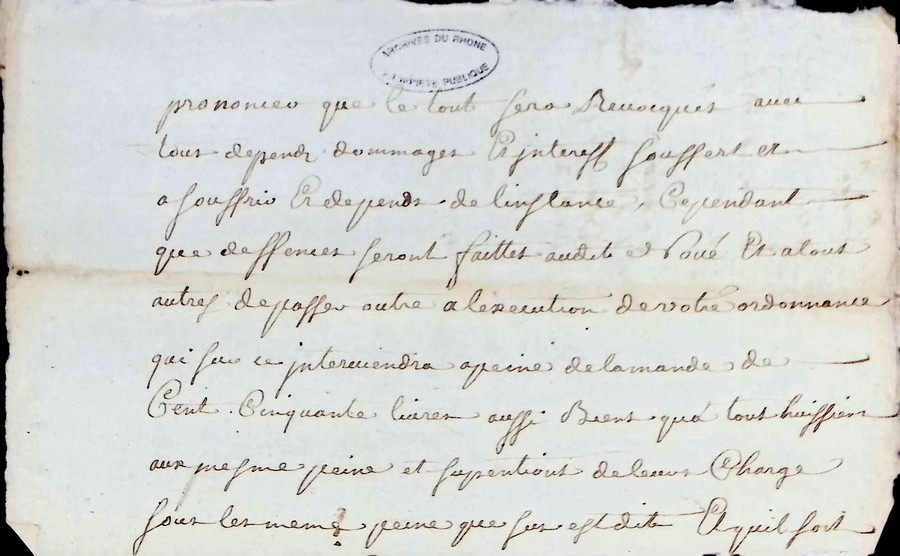 ARCHIVES DU RHONE
PROPRIETE PUBLIQUE
prononcer que le tout sera Revocqués avec
tous depends dommages Et jnterest souffert et
a souffrir Et depends de linstance, Cependant
que deffences seront faittes audit Et a tous
autres de passer outre a lexecution de votre ordonnance
qui sur ce jnterviendra apeine delamande de
Cent Cinquante livres aussi Biens qu'a tous huissiers
aux mesme peine et supentions de leurs Charge
sous les meme peine que sus est dite Et quil soit